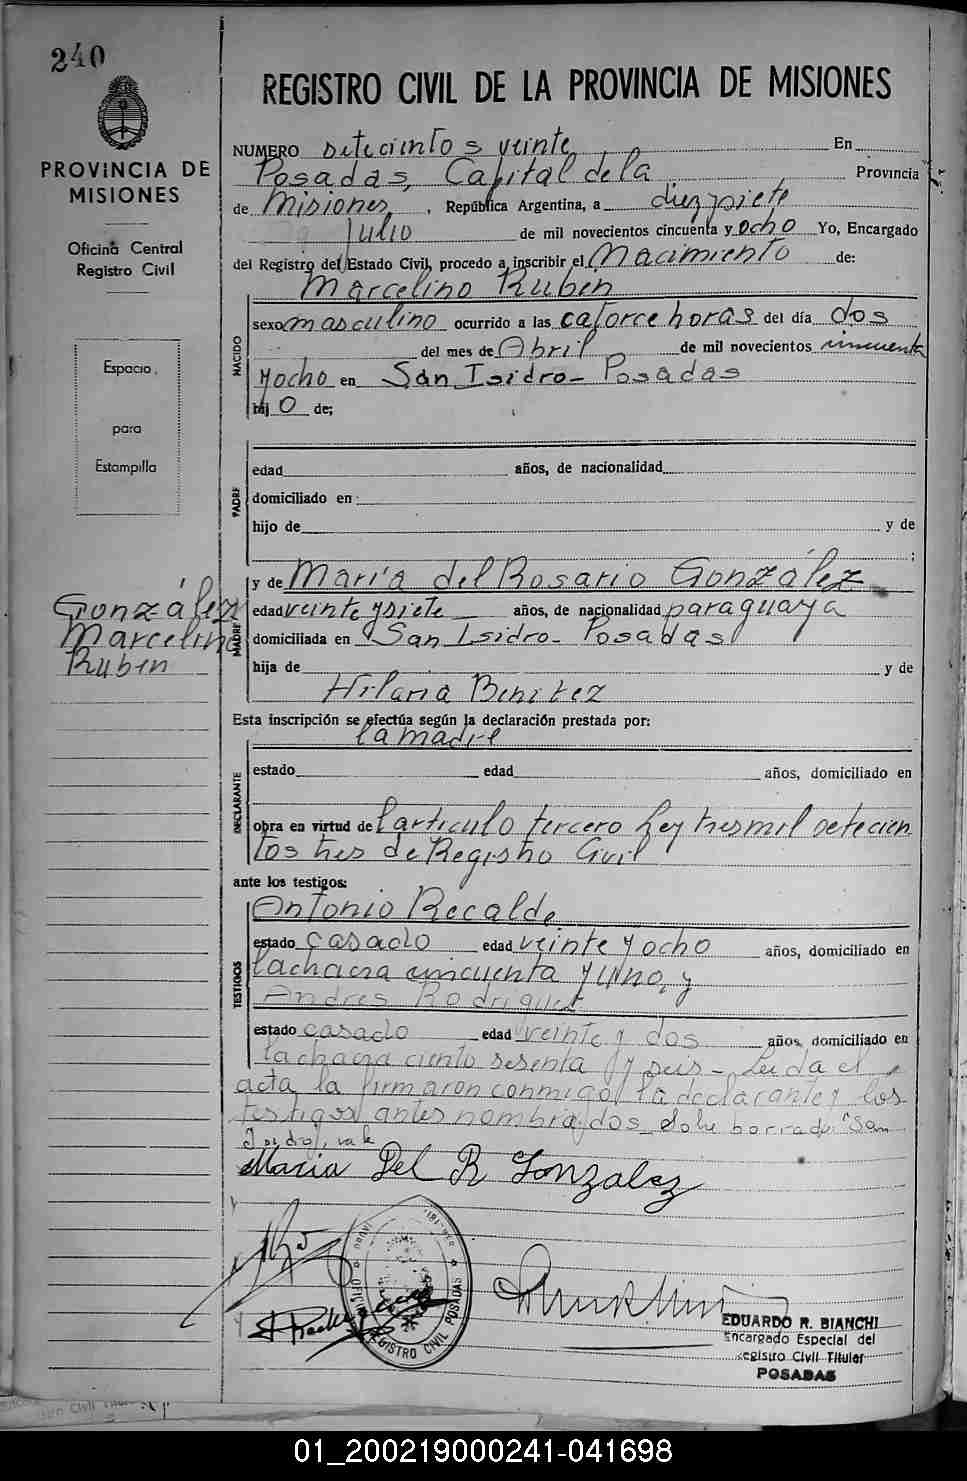 240
PROVINCIA DE
MISIONES
Oficina Central
Registro Civil
Espacio
para
Estampilla
González
Marcelino
Ruben
REGISTRO CIVIL DE LA PROVINCIA DE MISIONES
NUMERO setecientos veinte En
Posadas, Capital de la Provincia
de Misiones, República Argentina, a diez y siete
Julio de mil novecientos cincuenta y ocho Yo, Encargado
del Registro del Estado Civil, procedo a inscribir el Nacimiento de:
Marcelino Ruben
NACIDO
sexo masculino ocurrido a las catorce horas del día dos
del mes de Abril de mil novecientos cincuenta
y ocho en San Isidro - Posadas
hij o de;
PADRE
edad años, de nacionalidad
domiciliado en
hijo de y de
;
MADRE
y de María del Rosario González
edad veinte y siete años, de nacionalidad paraguaya
domiciliada en San Isidro - Posadas
hija de y de
Hilaria Benitez
Esta inscripción se efectúa según la declaración prestada por:
la madre
DECLARANTE
estado edad años, domiciliado en
obra en virtud del articulo tercero Ley tres mil setecien
tos tres de Registro Civil
ante los testigos:
TESTIGOS
Antonio Recalde
estado casado edad veinte y ocho años, domiciliado en
la chacra cincuenta y uno, y
Andres Rodriguez
estado casado edad veinte y dos años, domiciliado en
la chacra ciento sesenta y seis - Leida el
acta la firmaron conmigo la declarante y los
testigos antes nombrados. Sobre borrado: "San
Isidro", vale
Maria Del R Gonzalez
OFICINA REGISTRO CIVIL POSADAS
EDUARDO R. BIANCHI
Encargado Especial del
Registro Civil Titular
POSADAS
01_200219000241-041698